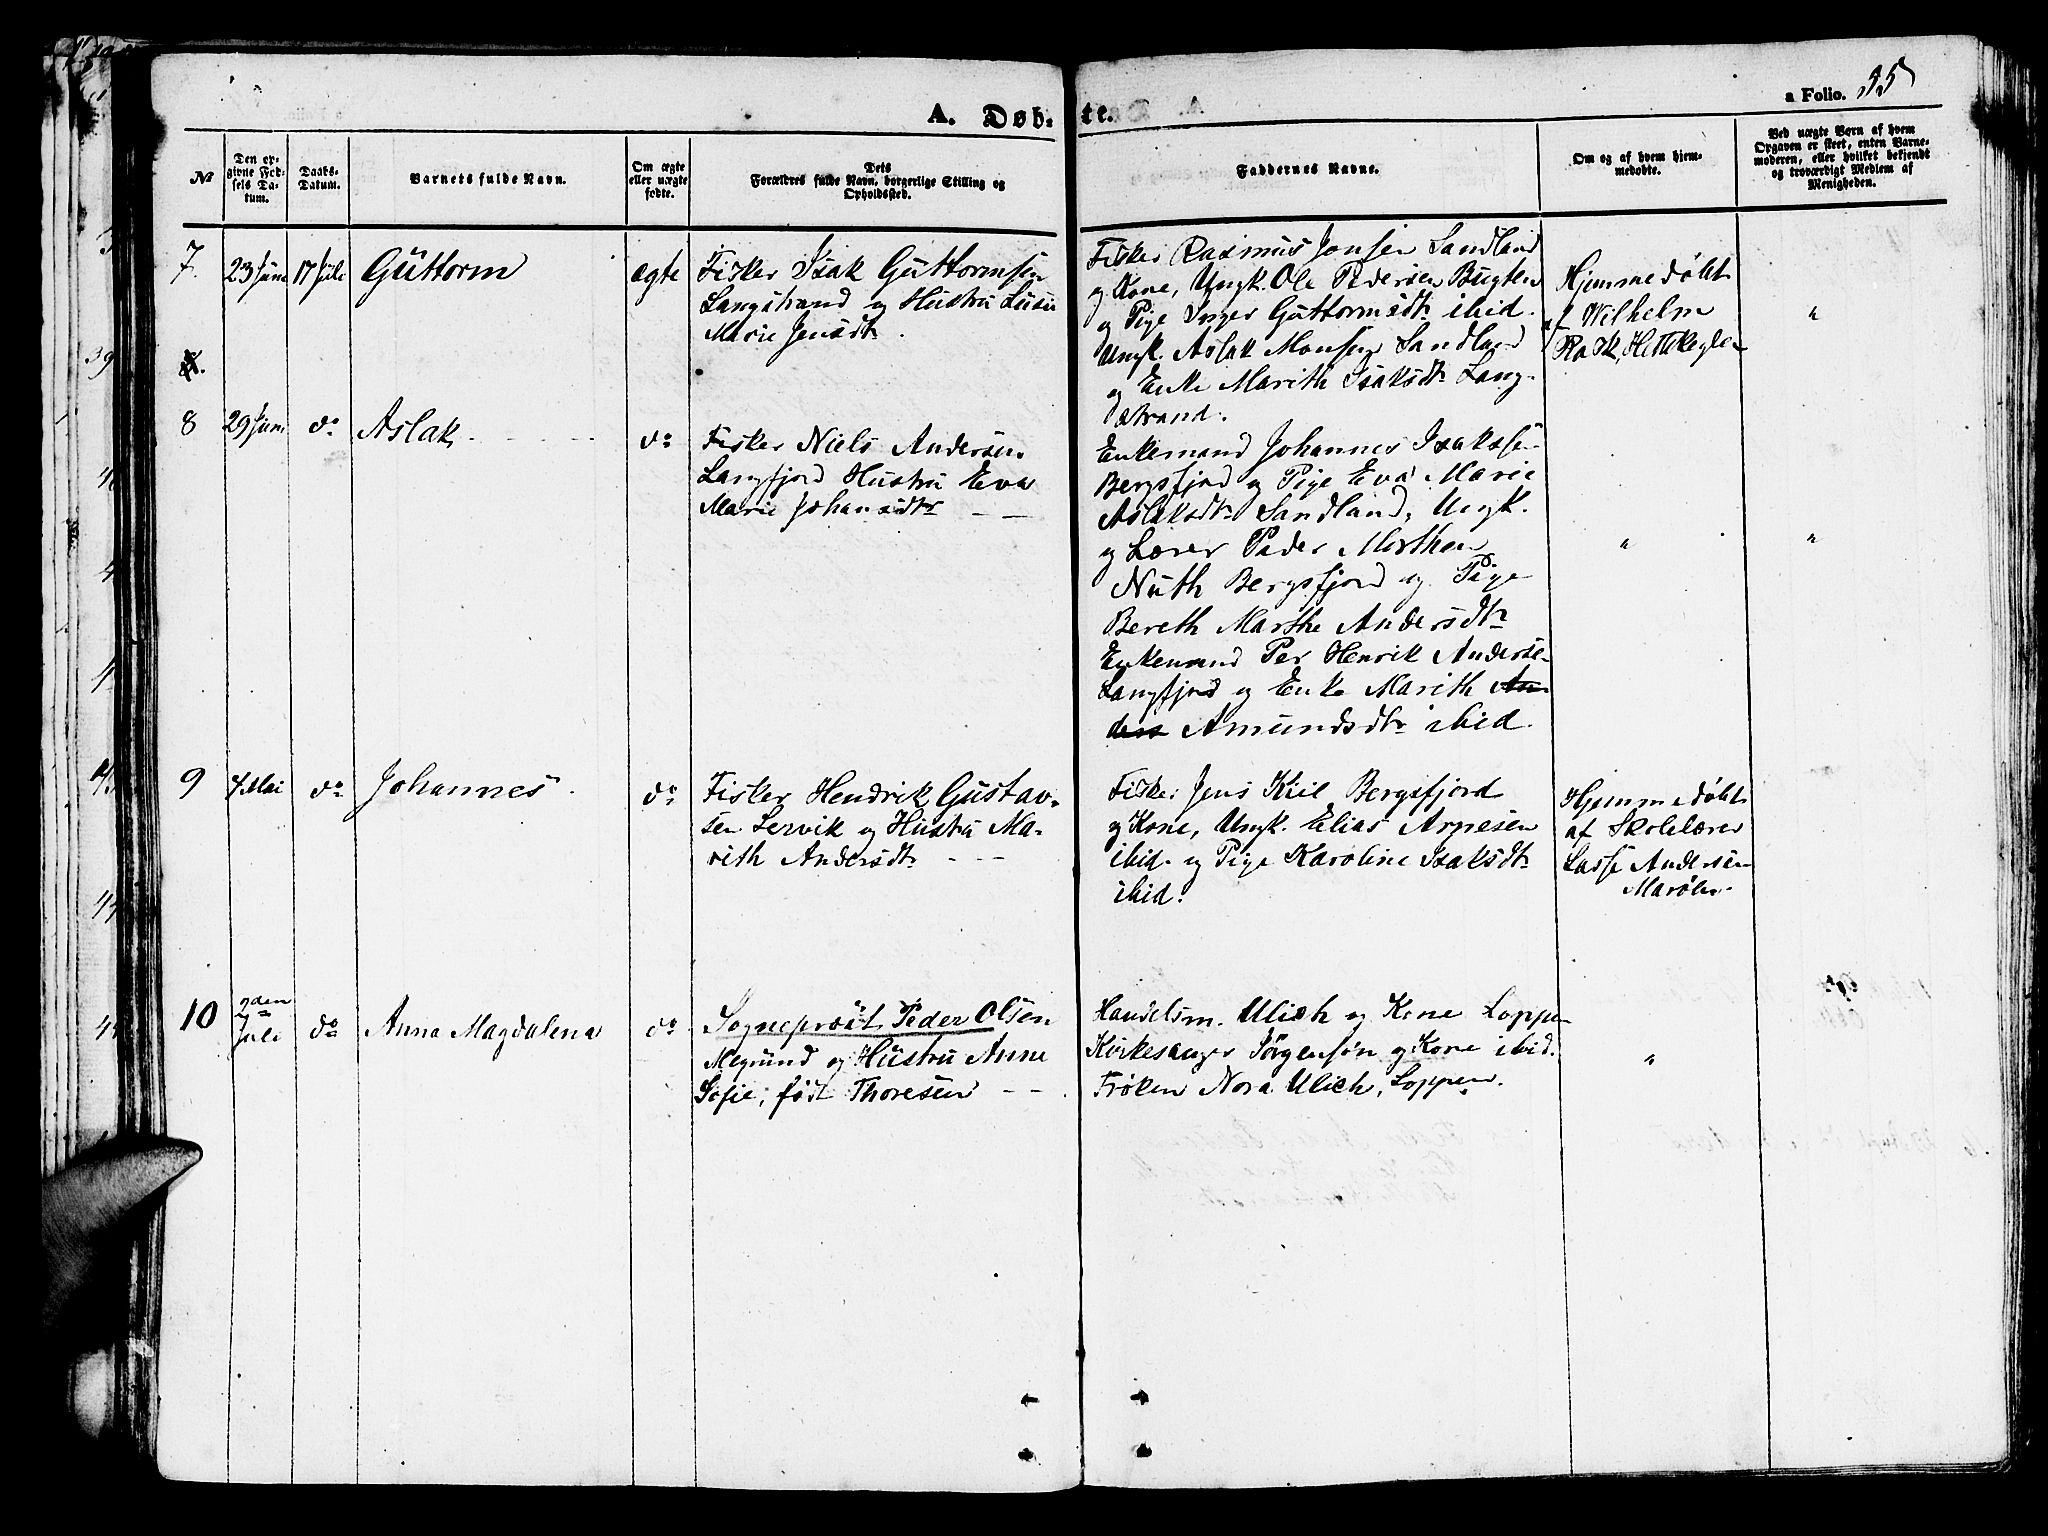 A. Døb-
te.
a Folio. 35
№
Den op-
givne Fød-
sels Da-
tum.
Daabs-
Datum.
Barnets fulde Navn.
Om ægte
eller uægte
fødte.
Dets
Forældres fulde Navn, borgerlige Stilling og
Opholdssted.
Faddernes Navne.
Om og af hvem hjem-
medøbte.
Ved uægte Børn af hvem
Opgaven er skeet, enten Barne-
moderen, eller hvilket bekjendt
og troværdigt Medlem af
Menigheden.
7.
23 Juni
17 Juli
Guttorm
ægte
Fisker Isak Guttormsen
Langstrand og Hustru Luise
Marie Jensdtr.
Fisker Rasmus Jonsen Sandland
og Kone, Ungk. Ole Pedersen Bugten
og Pige Inger Guttormsdtr ibid.
Ungk. Aslak Monsen Sandland
og Enke Marith Isaksdtr Lang-
strand.
Hjemmedøbt
af Wilhelm
Rask,
"
8
29 Juni
do
Aslak
do
Fisker Niels Andersen
Langfjord Hustru Eva
Marie Johansdtr
Enkemand Johannes Isakse-
Bergsfjord og Pige Eva Marie
Aslaksdtr Sandland, Ungk.
og Lærer Peder Morthen
Nuth Bergsfjord og Pige
Bereth Marthe Andersdtr
Enkemand Per Henrik Anderse-
Langfjord og Enke Marith An-
ders Amundsdtr ibid.
"
"
9
7 Mai
do
Johannes
do
Fisker Hendrik Gustav-
sen Lervik og Hustru Ma-
rith Andersdtr
Fisker Jens Kiil Bergsfjord
og Kone, Ungk. Elias Arnesen
ibid. og Pige Karoline Isaksdtr
ibid.
Hjemmedøbt
af Skolelærer
Lasse Andersen
10
2den
Juli
do
Anna Magdalena
do
Sogneprest Peder Olsen
Megrund og Hustru Anne
Sofie, født Thoresen
Handelsm. Ulich og Kone Loppen
Kirkesanger Jørgensen og Kone ibid.
Frøken Nora Ulich, Loppen.
"